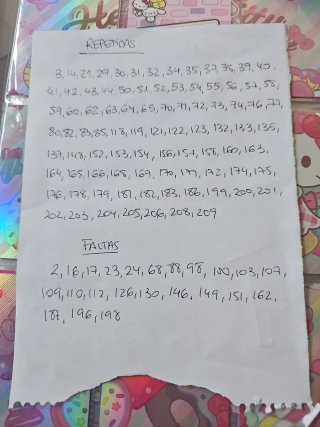 REPETIDAS
3, 14, 21, 29, 30, 31, 32, 34, 35, 37, 38, 39, 40,
41, 42, 43, 44, 50, 51, 52, 53, 54, 55, 56, 57, 58,
59, 60, 62, 63, 64, 65, 70, 71, 72, 73, 74, 76, 77,
80, 82, 83, 85, 118, 119, 121, 122, 123, 132, 133, 135,
137, 148, 152, 153, 154, 156, 157, 158, 160, 163,
164, 165, 166, 168, 169, 170, 171, 172, 174, 175,
176, 178, 179, 181, 182, 183, 186, 199, 200, 201,
202, 203, 204, 205, 206, 208, 209
FALTAS
2, 16, 17, 23, 24, 68, 88, 98, 100, 103, 107,
109, 110, 112, 126, 130, 146, 149, 151, 162,
187, 196, 198